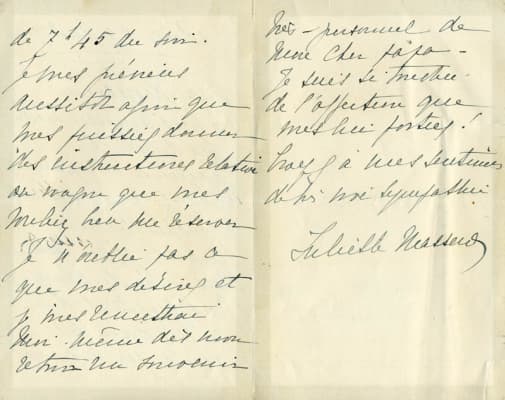 de 7h 45 du soir.
Je vous préviens
aussitôt afin que
vous puissiez donner
des instructions relatives
au wagon que vous
voulez bien me réserver
Je n'oublie pas ce
que vous désirez et
je vous remettrai
moi-même dès mon
retour un souvenir
très-personnel de
mon cher papa -
Je suis si touchée
de l'affection que
vous lui portiez!
Croyez à mes sentiments
de vive sympathie
Juliette Massenet